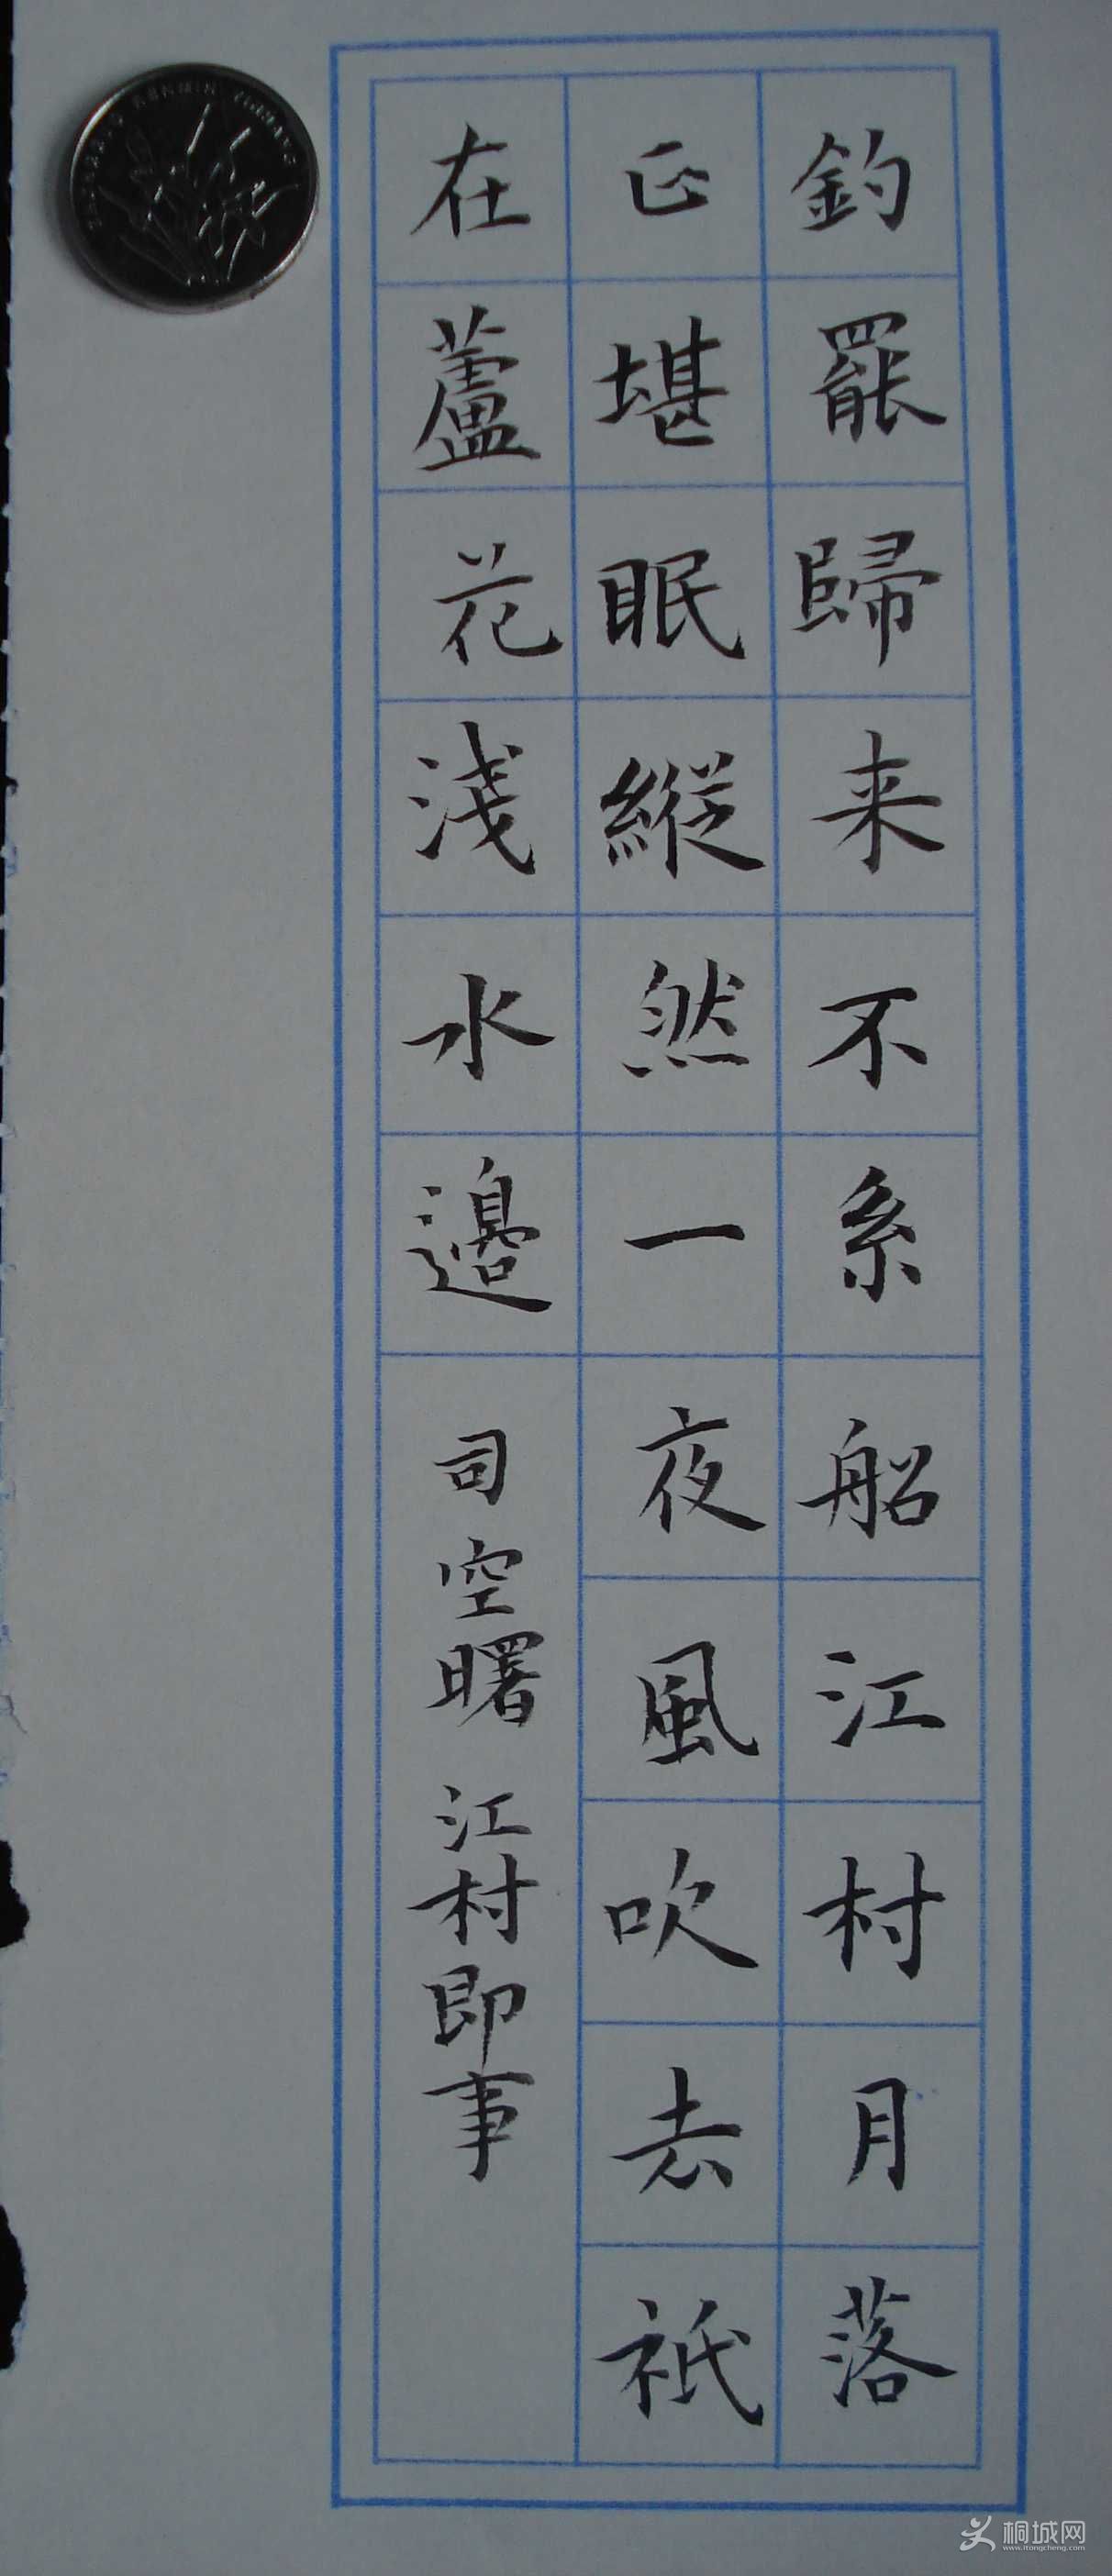 釣罷歸来不系船江村月落
正堪眠縱然一夜風吹去祇
在蘆花淺水邊
司空曙 江村即事
桐城网
www.itongcheng.com